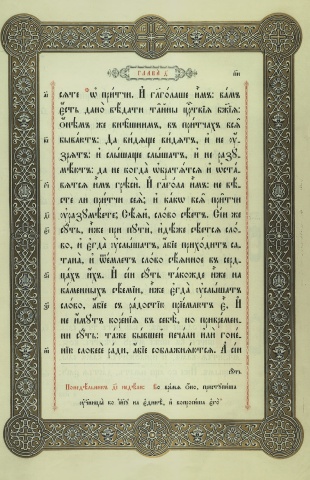 ГЛАВА Д҃
сѧте ѿ притчи. И҆ гл҃аголаше и҆мъ: вамъ
є҆сть дано вѣдати тайны црⷭ҇твїѧ бж҃їѧ:
ѻ҆нѣмъ же внѣшнимъ, въ притчахъ всѧ̑
быва́ютъ: Да видѧще видѧтъ, и҆ не ᲂу҆́
зрѧтъ: и҆ слышаще слышатъ, и҆ не разꙋ
мѣютъ: да не когда ѡ҆братѧтсѧ и҆ ѿста
вѧтсѧ и҆мъ грѣси. И҆ гл҃агола и҆мъ: не вѣ
сте ли притчи сеѧ; и҆ какѡ всѧ притчи
ᲂу҆разꙋмѣете; Сѣѧй, слово сѣетъ. Сїи же
сꙋть, и҆же при пꙋти, и҆дѣже сѣетсѧ сло
во, и҆ є҆гда ᲂу҆слышатъ, а҆бїе приходитъ са
тана, и҆ ѿемлетъ слово сѣѧнное въ серд
цахъ и҆хъ. И҆ сїи сꙋть такожде и҆же на
каменныхъ сѣемїи, и҆же є҆гда ᲂу҆слышатъ
слово, а҆бїе съ радостїю прїемлютъ є҆̀. И҆
не и҆мꙋтъ коренїѧ въ себѣ, но привремен
ни сꙋть: таже бывшей печали и҆ли гоне
нїю словесе ради, а҆бїе соблажнѧютсѧ. А҆ сїи
сꙋть
Во времѧ ѻ҆но, пристꙋпиша
ᲂу҆ченицы ко і҆и҃сꙋ на є҆динѣ, и҆ вопросиша є҆го